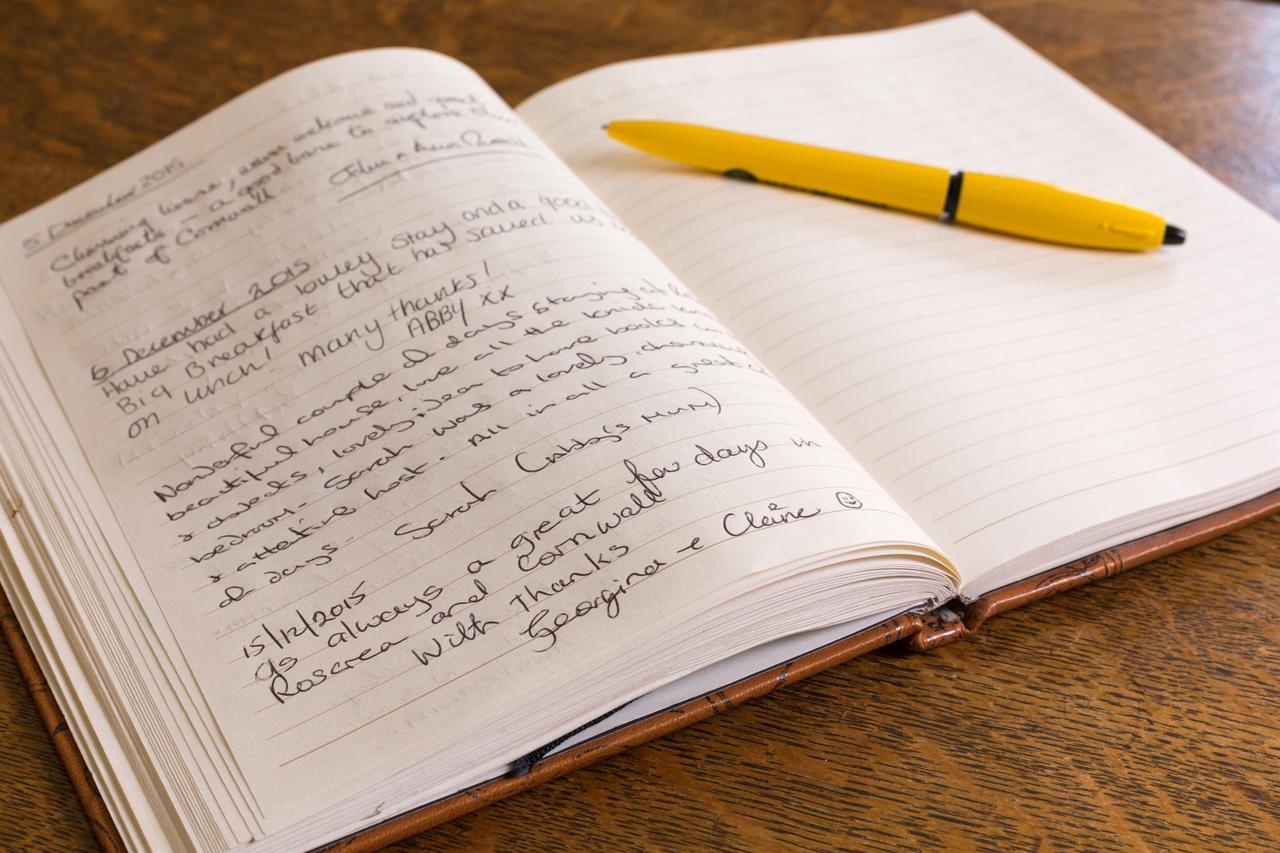 5 December 2015
Charming house, warm welcome and great
breakfasts - a good base to explore this
part of Cornwall
6 December 2015
Have had a lovley stay and a good
Big Breakfast that has saved us
on lunch! many thanks!
ABBY xx
Wonderful couple of days staying at
beautiful house, love all the
& objects, lovely idea to have books in
bedroom. Sarah was a lovely,
& attentive host. All in all a great
2 days. Sarah (Abby's Mum)
15/12/2015
As always a great few days in
Roscrea and Cornwall
With thanks
Georgina & Claire